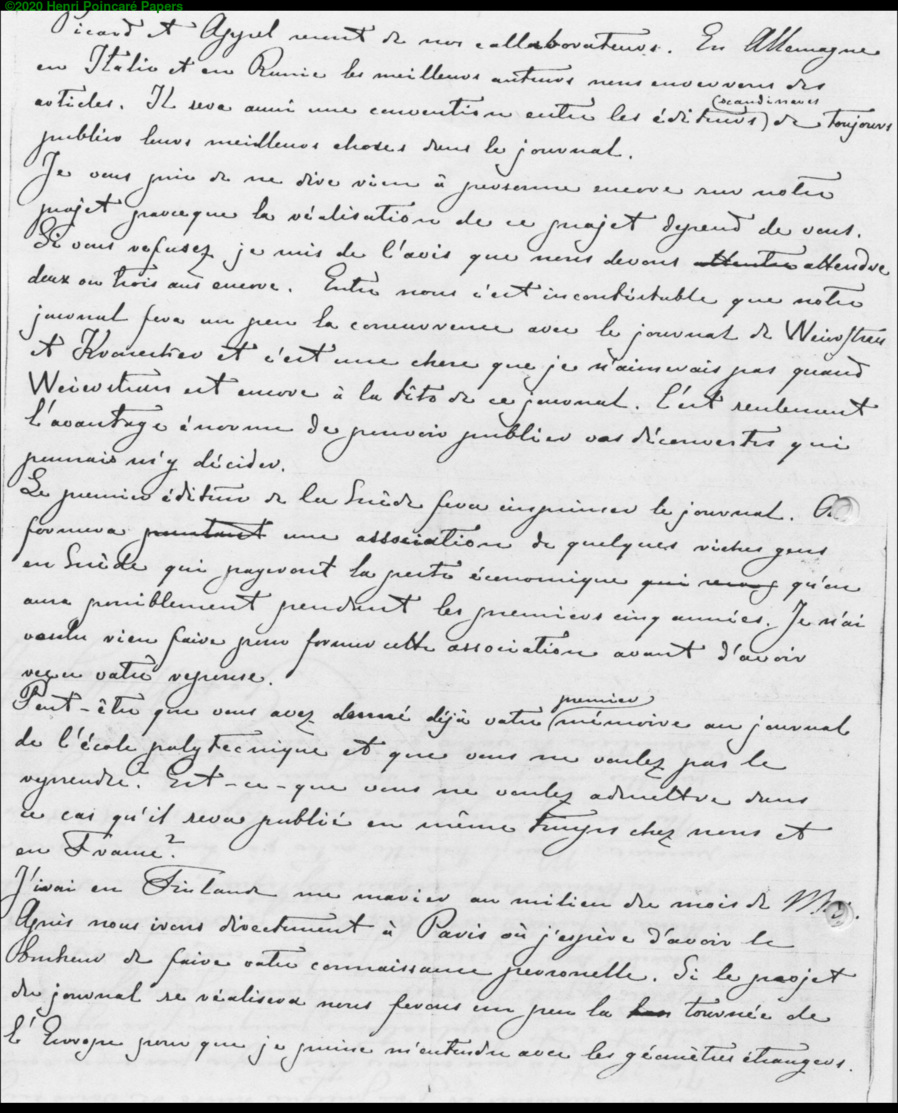 ©2020 Henri Poincaré Papers
Picard et Appel seront de nos collaborateurs. En Allemagne
en Italie et en Russie les meilleurs auteurs nous enverrons des
articles. Il sera aussi une convention entre les éditeurs (scandinaves) de toujours
publier leurs meilleures choses dans le journal.
Je vous prie de ne dire rien à personne encore sur notre
projet parceque la réalisation de ce projet depend de vous.
Si vous refusez je suis de l'avis que nous devons attendre
deux ou trois ans encore. Entre nous c'est incontestable que notre
journal fera un peu la concurrence avec le journal de Weierstrass
et Kronecker et c'est une chose que je n'aimerais pas quand
Weierstrass est encore à la tête de ce journal. C'est seulement
l'avantage énorme de pouvoir publier vos découvertes qui
pourrais m'y décider.
Le premier éditeur de la Suède fera imprimer le journal. On
formera pourtant une association de quelques riches gens
en Suède qui payeront la perte économique qui qu'on
aura possiblement pendant les premiers cinq années. Je n'ai
voulu rien faire pour former cette association avant d'avoir
reçu votre reponse.
Peut-être que vous avez donné déjà votre premier mémoire au journal
de l'école polytecnique et que vous ne voulez pas le
reprendre? Est-ce-que vous ne voulez admettre dans
ce cas qu'il sera publié en même temps chez nous et
en France?
J'irai en Finlande me marier au milieu du mois de
Après nous irons directement à Paris où j'espère d'avoir le
bonheur de faire votre connaissance personelle. Si le projet
du journal se réalisera nous ferons un peu la tournée de
l'Europe pour que je puisse m'entendre avec les géomètres étrangers.